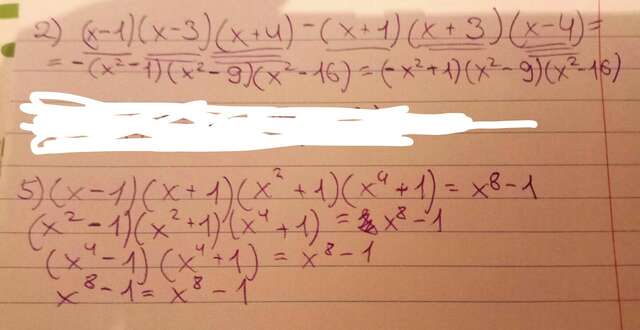 2) (x-1)(x-3)(x+4)-(x+1)(x+3)(x-4)=
=-(x²-1)(x²-9)(x²-16)=(-x²+1)(x²-9)(x²-16)
5)(x-1)(x+1)(x²+1)(x⁴+1)=x⁸-1
(x²-1)(x²+1)(x⁴+1)=x⁸-1
(x⁴-1)(x⁴+1)=x⁸-1
x⁸-1=x⁸-1